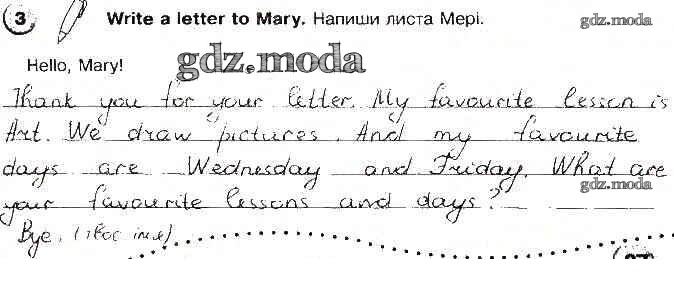 3 Write a letter to Mary. Напиши листа Мері.
gdz.moda
Hello, Mary!
gdz.moda
Thank you for your letter. My favourite lesson is
Art. We draw pictures. And my favourite
days are Wednesday and Friday. What are
gdz.moda
your favourite lessons and days?
Bye. (твоє ім'я)